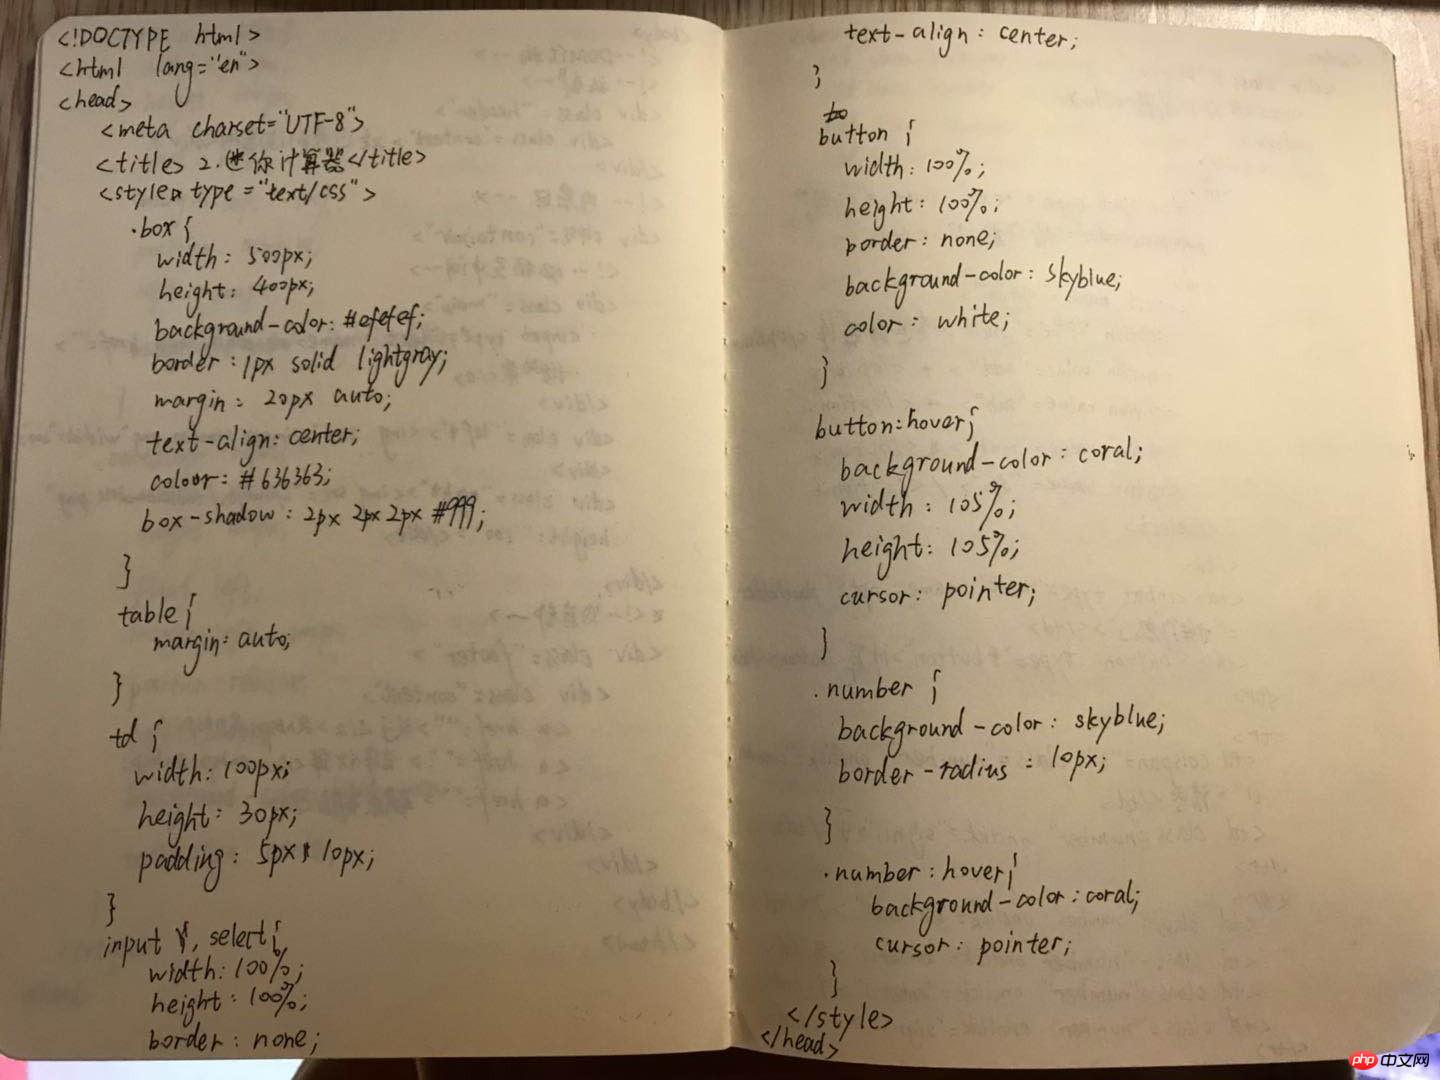 <!DOCTYPE html>
<html lang="en">
<head>
<meta charset="UTF-8">
<title>2.迷你计算器</title>
<style type="text/css">
.box{
width: 500px;
height: 400px;
background-color: #efefef;
border: 1px solid lightgray;
margin: 20px auto;
text-align: center;
color: #636363;
box-shadow: 2px 2px 2px #999;
}
table{
margin: auto;
}
td {
width: 100px;
height: 30px;
padding: 5px 10px;
}
input, select{
width: 100%;
height: 100%;
border: none;
text-align: center;
}
button {
width: 100%;
height: 100%;
border: none;
background-color: skyblue;
color: white;
}
button:hover{
background-color: coral;
width: 105%;
height: 105%;
cursor: pointer;
}
.number {
background-color: skyblue;
border-radius: 10px;
}
.number:hover{
background-color: coral;
cursor: pointer;
}
</style>
</head>
php 中文网